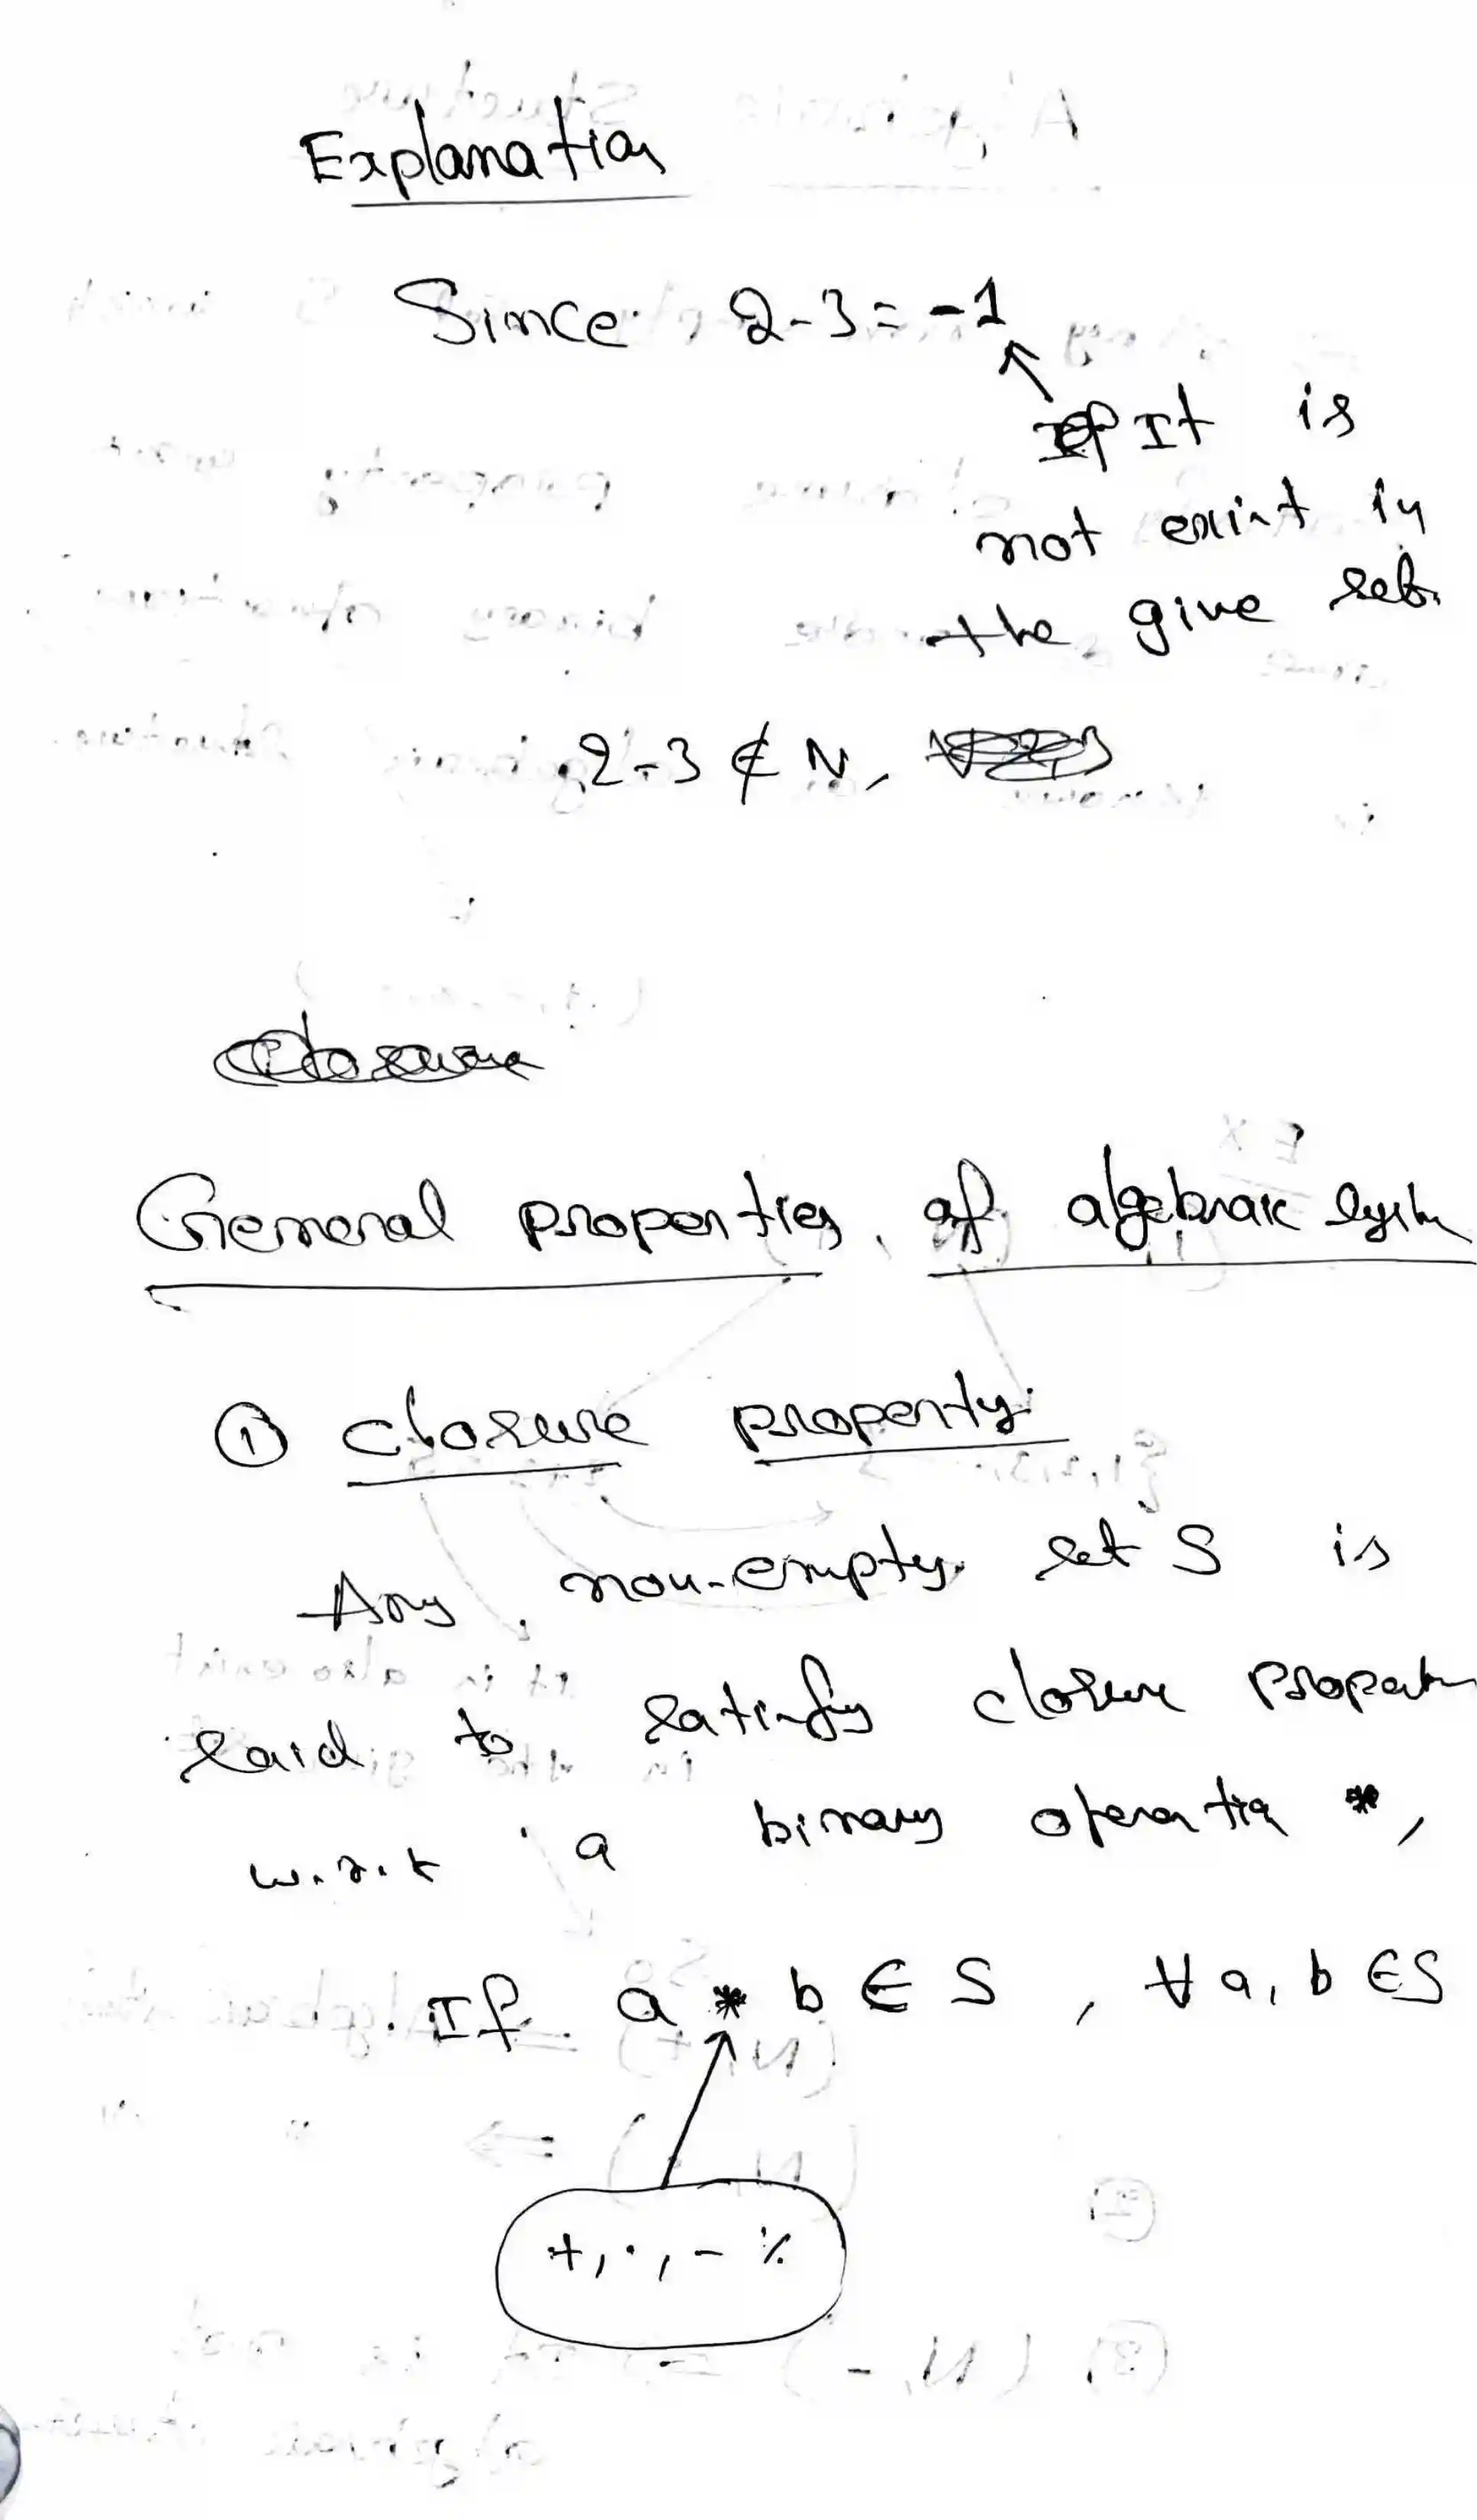 Explanation
Since 2-3 = -1
It is
not exist in
the give set.
2-3 ∉ N,
General properties of algebraic system
① closure property
Any non-empty set S is
said to satisfy closure property
w.r.t a binary operation *,
If a * b ∈ S , ∀ a, b ∈ S
+, ·, - %